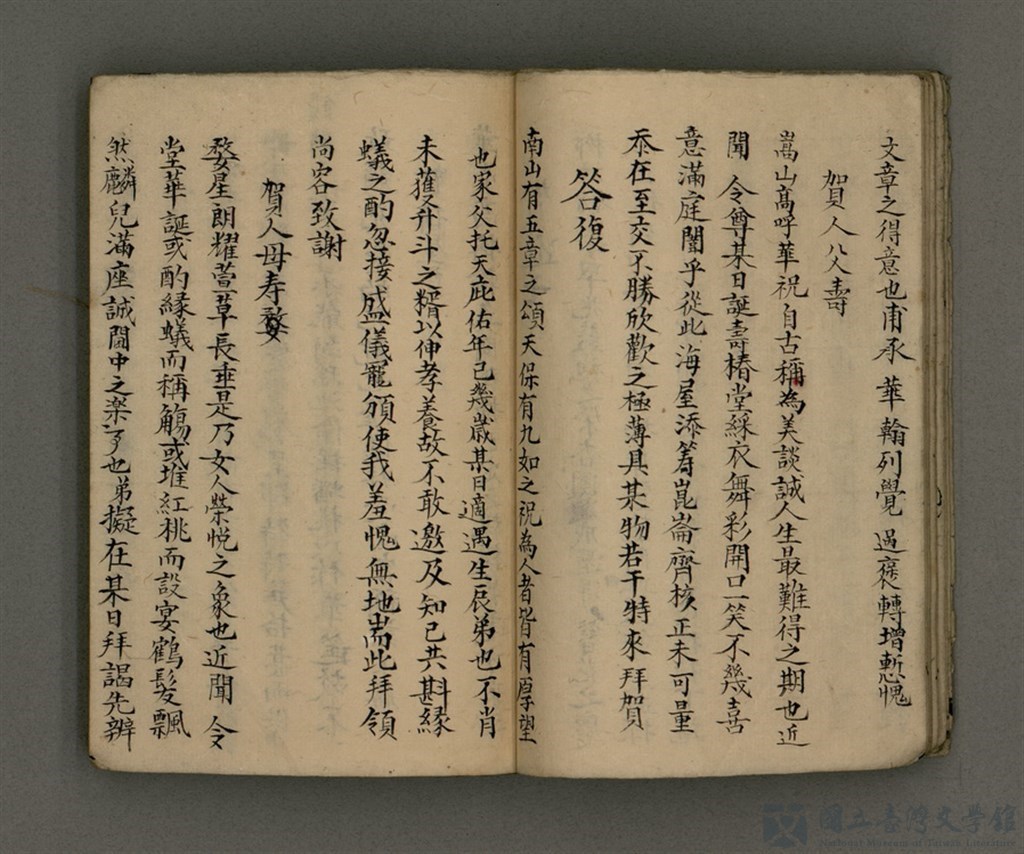 文章之得意也甫承 華翰列覺 過褒轉增慙愧
賀人父壽
嵩山高呼華祝自古稱為美談誠人生最難得之期也近
聞 令尊某日誕壽椿堂綵衣舞彩開口一笑不幾喜
意滿庭闈乎從此海屋添筹崑崙齊核正未可量
忝在至交不勝欣歡之極薄具某物若干特來拜賀
答復
南山有五章之頌天保有九如之祝為人者皆有厚望
也家父托天庇佑年已幾歲某日適遇生辰弟也不肖
未獲升斗之糈以伸孝養故不敢邀及知己共斟緑
蟻之酌忽接盛儀寵頒使我羞愧無地耑此拜領
尚容致謝
賀人母寿婺
婺星朗耀萱草長垂是乃女人榮悅之象也近聞 令
堂華誕或酌緑蟻而稱觴或堆紅桃而設宴鶴髮飄
然麟兒滿座誠閫中之楽事也弟擬在某日拜謁先辨
國立臺灣文學館
National Museum of Taiwan Literature